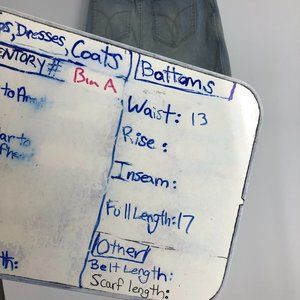 ps, Dresses, Coats
ENTORY #
Bin A
to Armp
ar to
th:
Bottoms
Waist: 13
Rise:
Inseam:
Full Length: 17
Other
Belt Length:
Scarf length: